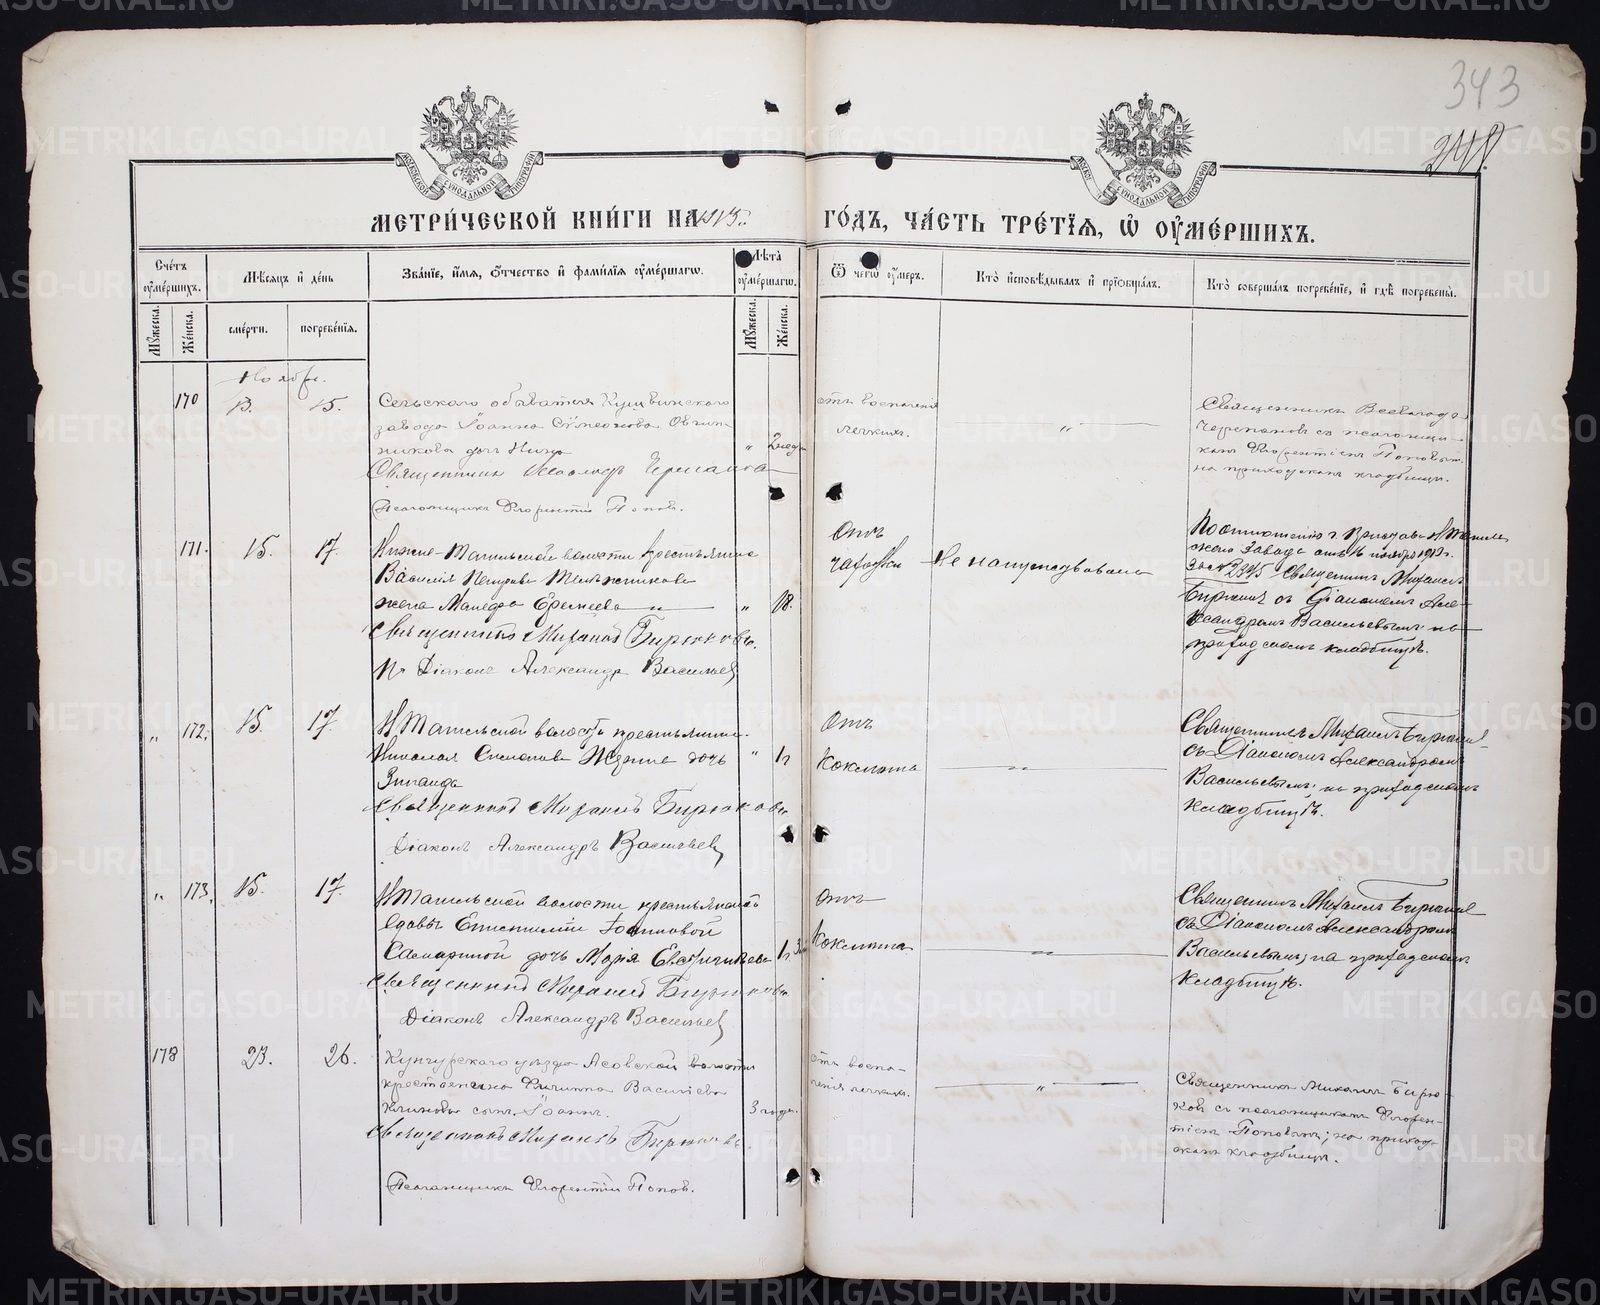 343
248
МЕТРИ́ЧЕСКОЙ КНИ́ГИ НА 1913. ГО́ДЪ, ЧА́СТЬ ТРЕ́ТЇѦ, Ѡ҆ ОУ҆МЕ́РШИХЪ.
Сче́тъ оумершихъ.
Мꙋжеска.
Же́нска.
Мѣсѧцъ и де́нь
сме́рти.
погребе́нїѧ.
Зва́нїе, и҆́мѧ, о҆́тчество и҆ фами́лїѧ оу҆ме́ршагѡ.
Лѣта̀ оу҆ме́ршагѡ.
Мꙋжеска.
Же́нска.
Ѿ чегѡ̀ оу҆́меръ.
Кто̀ и҆сповѣ́дывалъ и҆ прїѡбща́лъ.
Кто̀ соверша́лъ погребе́нїе, и҆ гдѣ̀ погребены̀.
Ноябрь.
170 13. 15.
Сельского обывателя Кушвинского
завода Іоанна Симеонова Овчин-
никова дочь Нина
" 2 нед.
Священникъ Всеволодъ Черепановъ
Псаломщикъ Флорентій Поповъ.
отъ воспаленія
легкихъ.
"
Священникъ Всеволодъ
Черепановъ съ псаломщи-
комъ Флорентіемъ Поповымъ
на приходскомъ кладбищѣ.
171. 15. 17.
Нижне-Тагильской волости крестьянина
Василія Петрова
жена Ереміева " 18.
Священникъ Михаилъ Бирюковъ.
Діаконъ Александръ Васильевъ
Отъ
чахотки
Не напутствована
По отношенію г. Пристава Н Тагиль
скаго Завода отъ 16 ноября 1913 г.
за № 2345 Священникъ Михаилъ
Бирюковъ съ Діакономъ Але-
ксандромъ Васильевымъ на
приходскомъ кладбищѣ.
" 172. 15. 17.
Н Тагильской волости крестьянина
Николая дочь "
Зинаида
Священникъ Михаилъ Бирюковъ
Діаконъ Александръ Васильевъ
Отъ
Коклюша
"
Священникъ Михаилъ Бирюковъ
съ Діакономъ Александромъ
Васильевымъ; на приходскомъ
кладбищѣ.
" 173. 15. 17.
Н Тагильской волости крестьянской
вдовы Іоанновой
дочь Марія
Священникъ Михаилъ Бирюковъ
Діаконъ Александръ Васильевъ
Отъ
Коклюша
"
Священникъ Михаилъ Бирюковъ
съ Діакономъ Александромъ
Васильевымъ; на приходскомъ
кладбищѣ.
178 23. 26.
Кунгурского уѣзда Асовской волости
крестьянина Филиппа Васильева
сынъ Іоаннъ. 3 года.
Священникъ Михаилъ Бирюковъ.
Псаломщикъ Флорентій Поповъ.
отъ воспа-
ленія легкихъ.
"
Священникъ Михаилъ Бирю-
ковъ съ псаломщикомъ Флорен-
тіемъ Поповымъ; на приход-
скомъ кладбищѣ.
METRIKI.GASO-URAL.RU